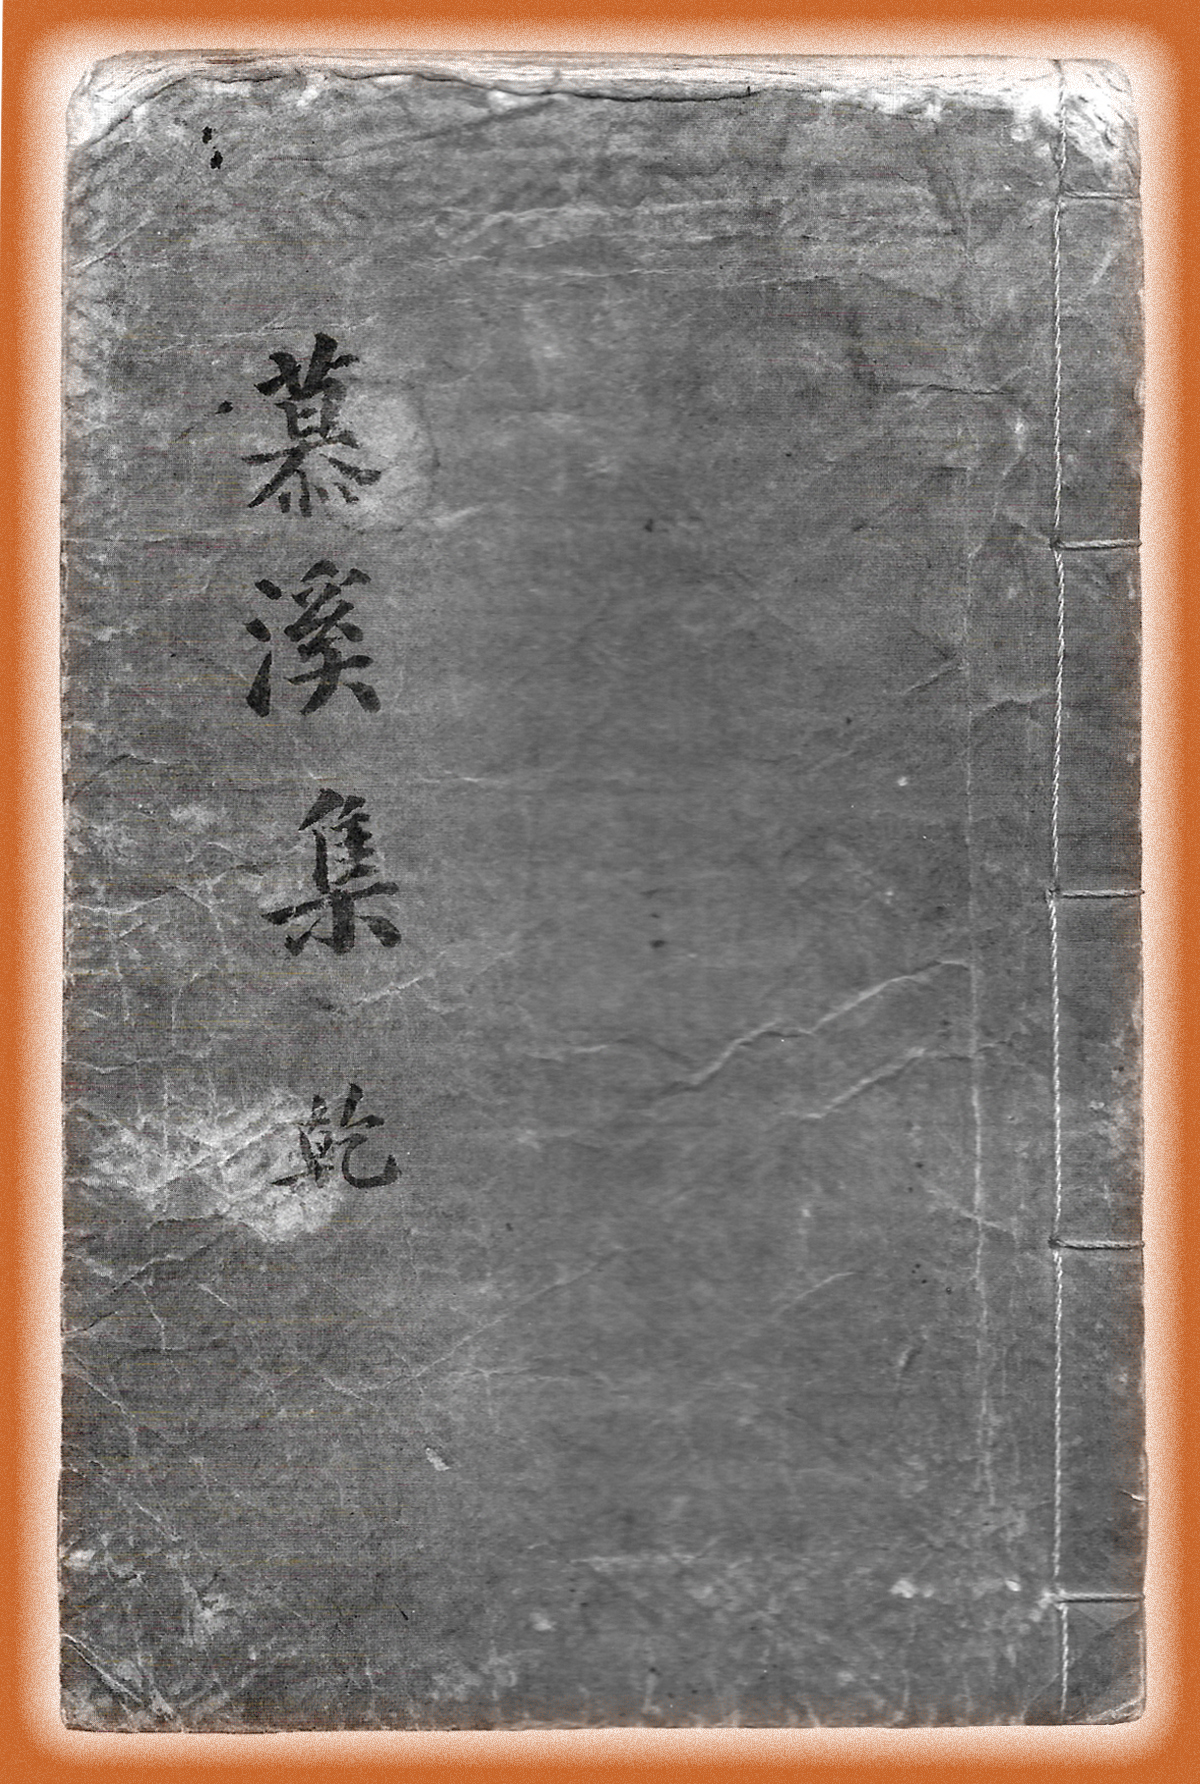 慕溪集 乾